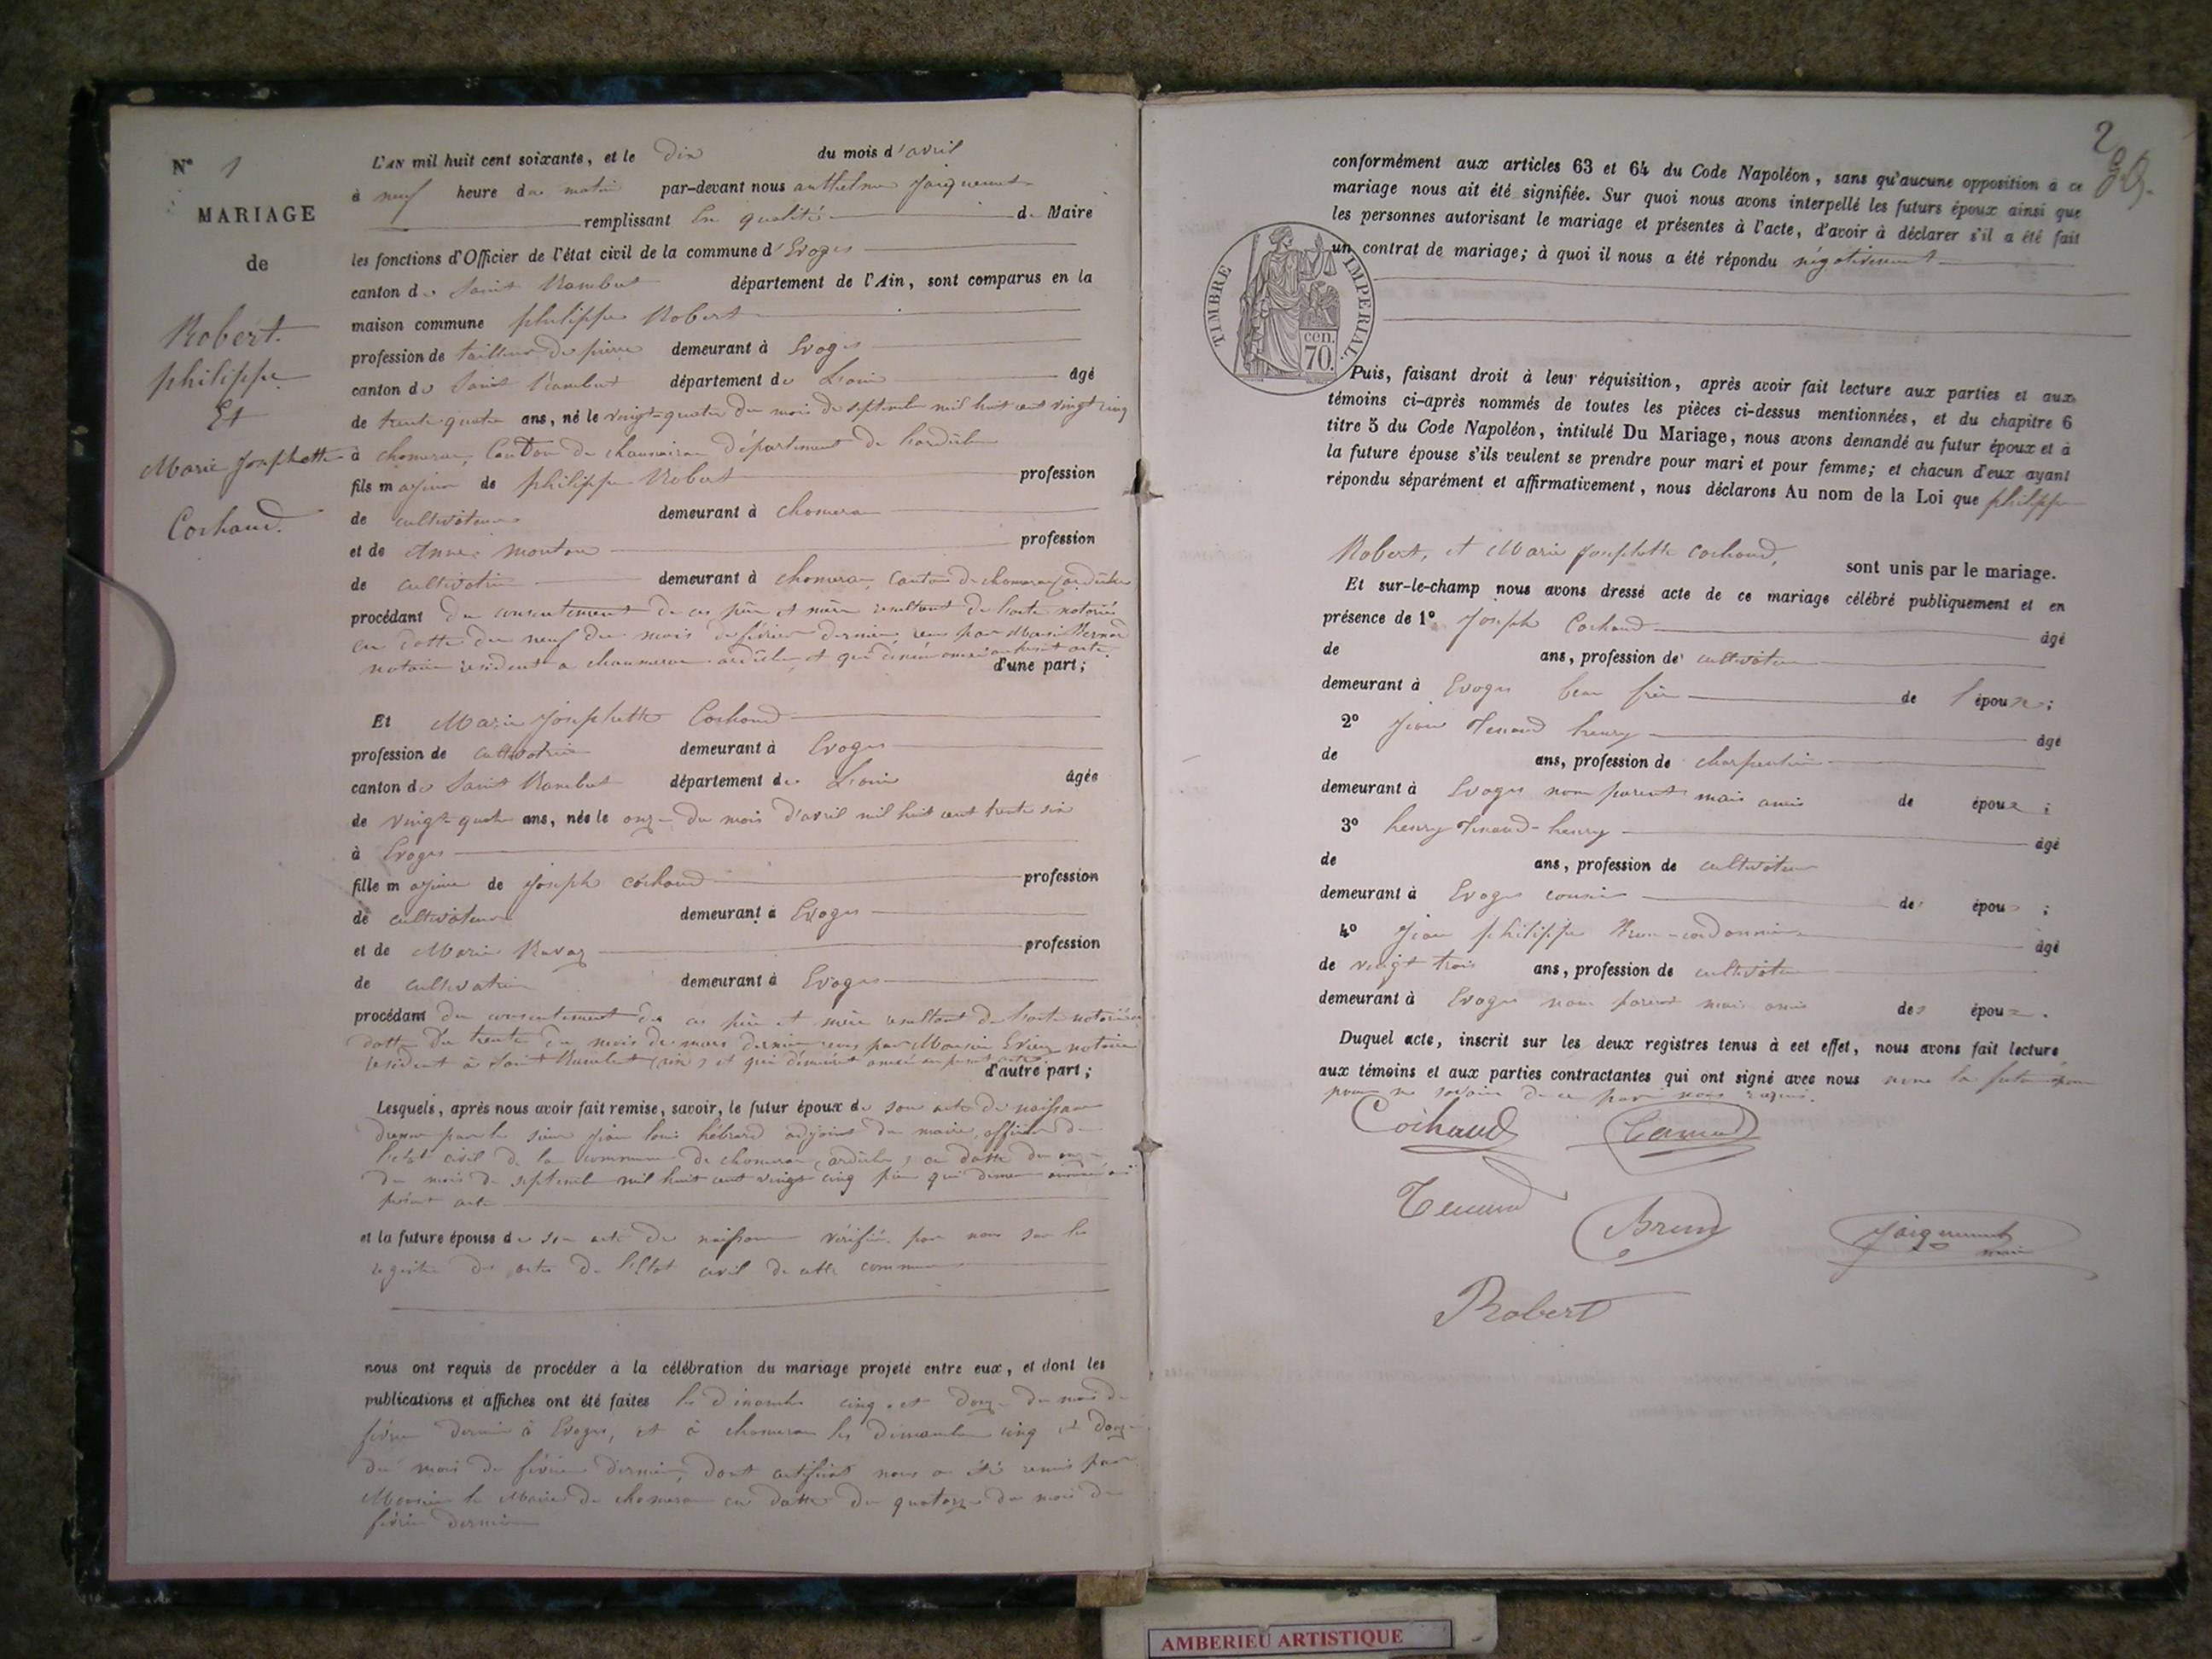 N° 1
MARIAGE
de
Robert
philippe
Et
Marie Josephette
Cochaud.
L'AN mil huit cent soixante, et le dix du mois d'avril
à neuf heure du matin par-devant nous anthelme Jaiquemet
remplissant en qualité de Maire
les fonctions d'Officier de l'état civil de la commune d'Evoges
canton de Saint Rambert département de l'Ain, sont comparus en la
maison commune philippe Robert
profession de tailleur de pierre demeurant à Evoges
canton de Saint Rambert département de L'ain âgé
de trente quatre ans, né le vingt-quatre du mois de septembre mil huit cent vingt cinq
à chomerac, Canton de département de Lardèche
fils majeur de philippe Robert profession
de cultivateur demeurant à chomerac
et de Anne mouton profession
de cultivatrice demeurant à chomerac, Canton de chomerac (ardèche)
procédant du consentement de ces père et mère resultant de l'acte notariée
en datte du neuf du mois de février dernier, reçu par Monsieur
notaire resident a ardèche, et qui annexé au présent acte.
d'une part;
Et Marie Josephette Cochaud
profession de cultivatrice demeurant à Evoges
canton de Saint Rambert département de L'ain âgée
de vingt quatre ans, née le onze du mois d'avril mil huit cent trente six
à Evoges
fille majeure de Joseph cochaud profession
de cultivateur demeurant à Evoges
et de Marie Ravaz profession
de cultivatrice demeurant à Evoges
procédant du consentement de ces père et mère resultant de l'acte notariée
datte du trente du mois de mars dernier reçu par Monsieur notaire
resident à Saint Rambert (ain) et qui demeure annexé au présent acte.
d'autre part;
Lesquels, après nous avoir fait remise, savoir, le futur époux de son acte de naissance
par le sieur Jean louis hébrard adjoint du maire, officier de
l'etat civil de la commune de chomerac (ardèche) en datte du
du mois de septembre mil huit cent vingt cinq qui demeure
présent acte
et la future épouse de son acte de naissance vérifié par nous sur les
registre des actes de l'Etat civil de cette commune
nous ont requis de procéder à la célébration du mariage projeté entre eux, et dont les
publications et affiches ont été faites les dimanche cinq et douze du mois de
février dernier à Evoges, et à chomerac les dimanche cinq et douze
du mois de février dernier, dont certificat nous a été remis par
Monsieur le Maire de chomerac en datte du quatorze du mois de
février dernier
2
conformément aux articles 63 et 64 du Code Napoléon, sans qu'aucune opposition à ce
mariage nous ait été signifiée. Sur quoi nous avons interpellé les futurs époux ainsi que
les personnes autorisant le mariage et présentes à l'acte, d'avoir à déclarer s'il a été fait
un contrat de mariage; à quoi il nous a été répondu négativement
TIMBRE IMPERIAL.
cen.
70.
Puis, faisant droit à leur réquisition, après avoir fait lecture aux parties et aux
témoins ci-après nommés de toutes les pièces ci-dessus mentionnées, et du chapitre 6
titre 5 du Code Napoléon, intitulé Du Mariage, nous avons demandé au futur époux et à
la future épouse s'ils veulent se prendre pour mari et pour femme; et chacun d'eux ayant
répondu séparément et affirmativement, nous déclarons Au nom de la Loi que philippe
Robert, et Marie Josephette cochaud, sont unis par le mariage.
Et sur-le-champ nous avons dressé acte de ce mariage célébré publiquement et en
présence de 1° Joseph Cochaud âgé
de ans, profession de cultivateur
demeurant à Evoges beau frère de l'époux;
2° Jean Tenand henry âgé
de ans, profession de charpentier
demeurant à Evoges non parent mais amis de époux;
3° henry Tenand-henry âgé
de ans, profession de cultivateur
demeurant à Evoges cousin des époux;
4° Jean philippe âgé
de vingt trois ans, profession de cultivateur
demeurant à Evoges non parent mais amis des époux.
Duquel acte, inscrit sur les deux registres tenus à cet effet, nous avons fait lecture
aux témoins et aux parties contractantes qui ont signé avec nous non la future épouse
pour ne savoir de ce par nous requis.
Cochaud Tenand
Tenand Brun Jaiquemet maire
Robert
AMBERIEU ARTISTIQUE